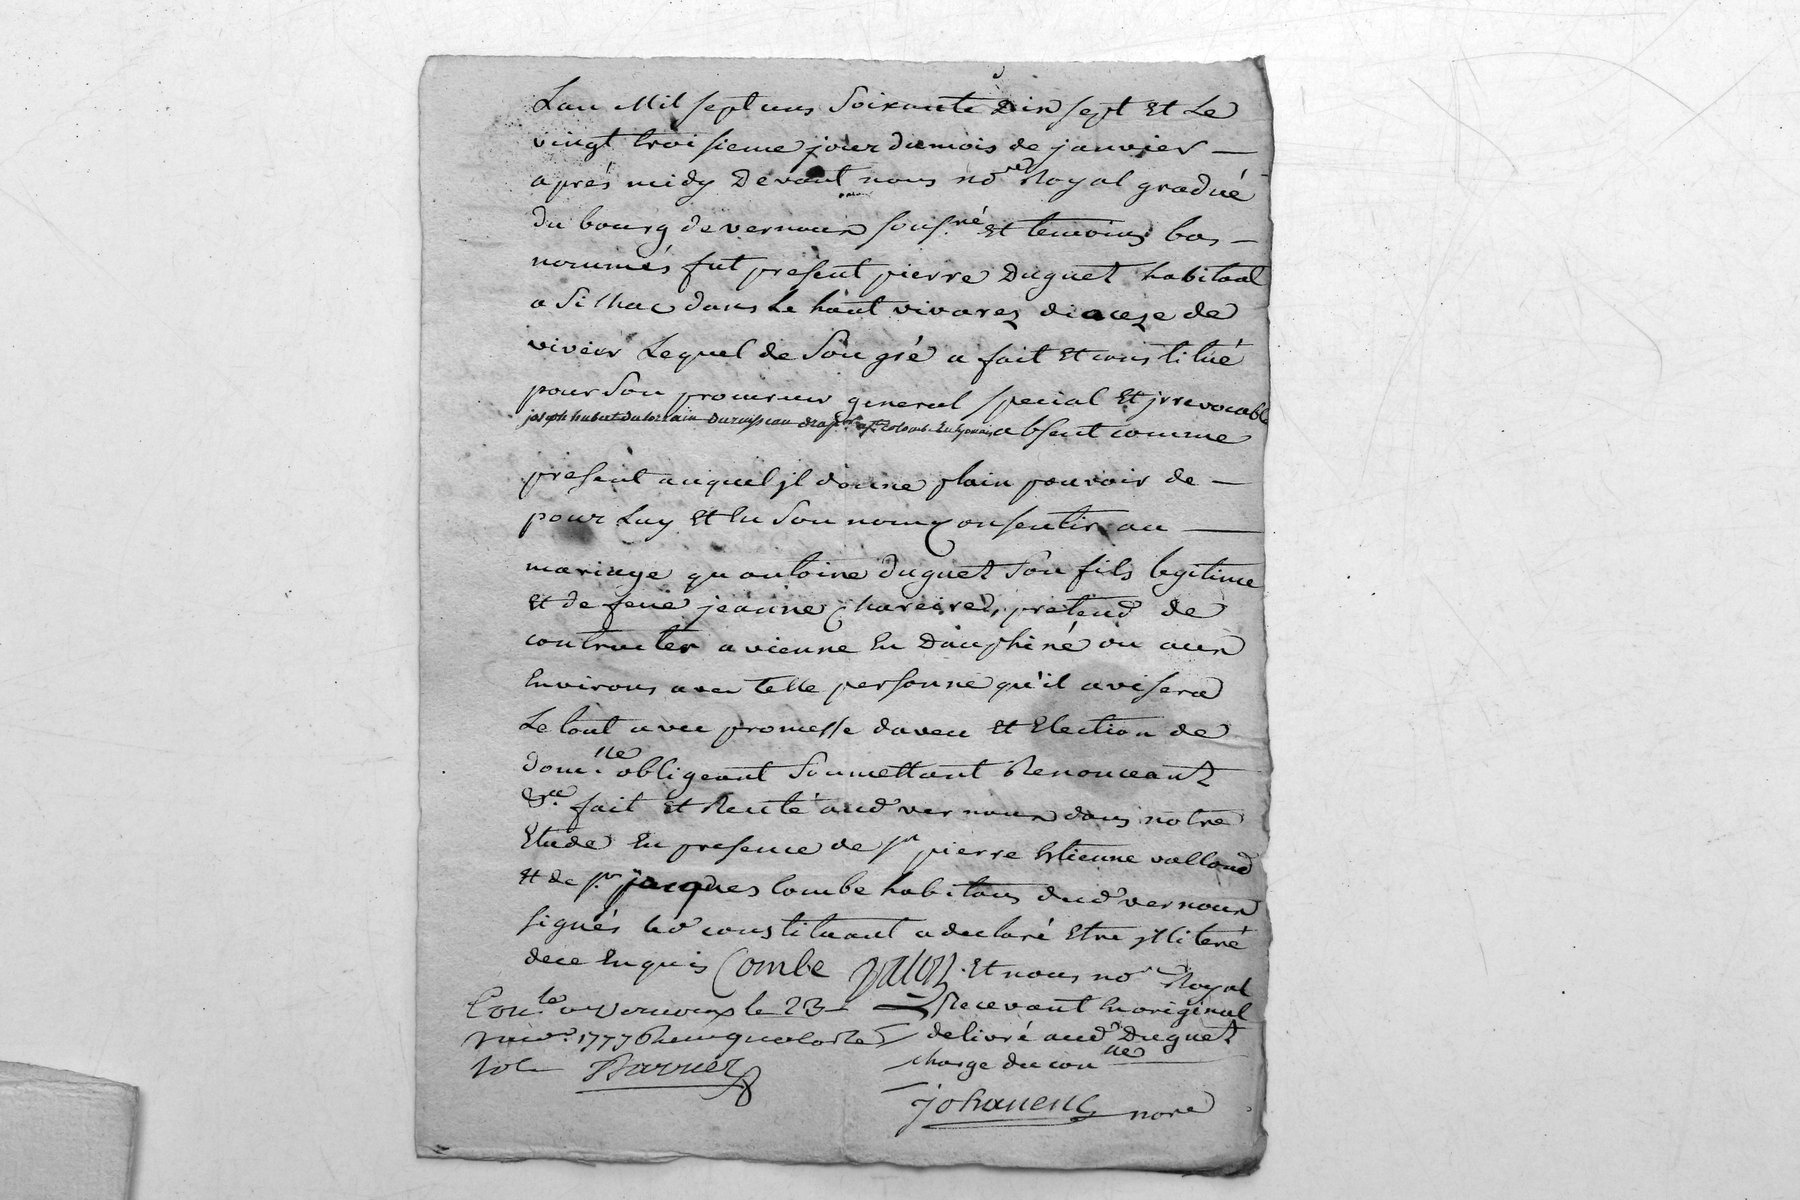 Lan Mil sept cens Soixante Dix sept Et Le
vingt troisieme jour du mois de janvier —
aprés midy Devant nous no.re Royal gradué
du bourg de vernoux sous.né Et temoins bas —
nommés fut present pierre Duguet habitant
a Silhac dans Le haut vivarez dioceze de
vivier Lequel de Son gré a fait Et constitué
pour Son procureur general special Et jrrevocable
joseph hubert absent comme
present auquel jl donne plain pouvoir de —
pour Luy Et En Son nom Consentir au —
mariage qu antoine duguet Son fils legitime
Et de feue jeanne Chareire, pretend de
contracter a vienne En Dauphiné ou aux
Environs avec telle personne qu'il avisera
Le tout avec promesse daveu Et Election de
dom.lle obligeant Soumettant Renonceant
&.ce fait Et Recité aud vernoux dans notre
Etude En presence de sr pierre Estienne valland
Et de sr jacques Combe habitans dud vernoux
signés led constituant a declaré Etre jlliteré
de ce Enquis Combe Et nous no.re Royal
Con.le a Vernoux le 23 — Recevant En original
janv.r 1777 delivré aud Duguet
charge du con.lle
Barruel
johanenc nore